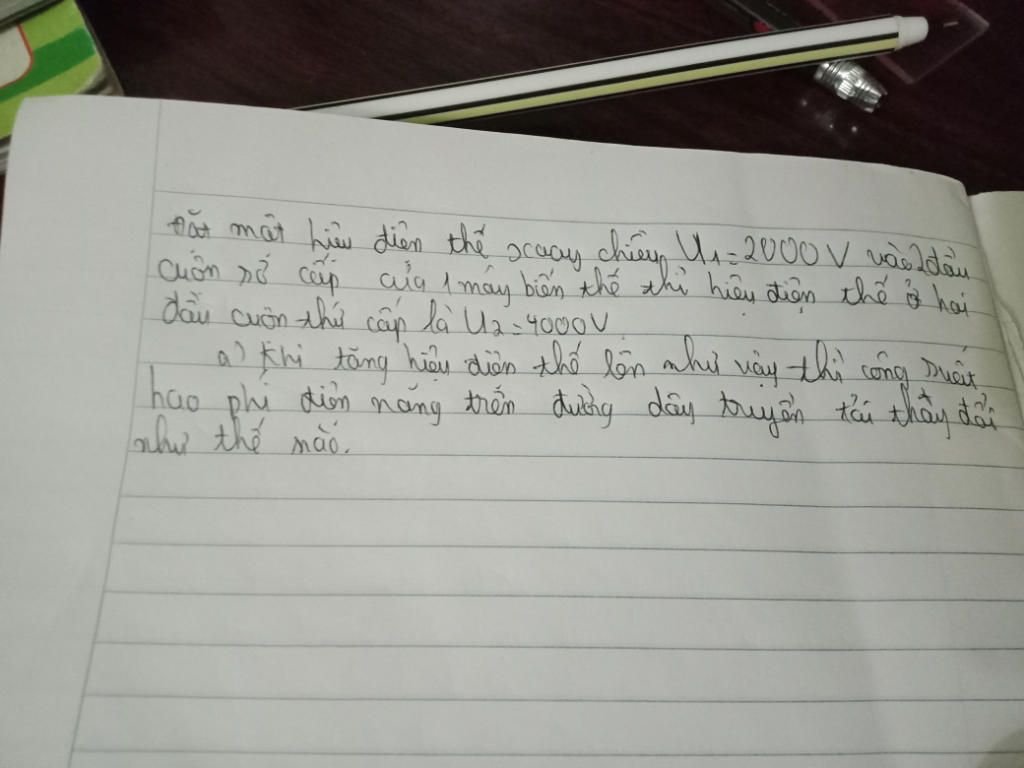 Đặt một hiệu điện thế xoay chiều U1=2000V vào 2 đầu
cuộn sơ cấp của 1 máy biến thế thì hiệu điện thế ở hai
đầu cuộn thứ cấp là U2=4000V
a) Khi tăng hiệu điện thế lên như vậy thì công suất
hao phí điện năng trên đường dây truyền tải thay đổi
như thế nào.